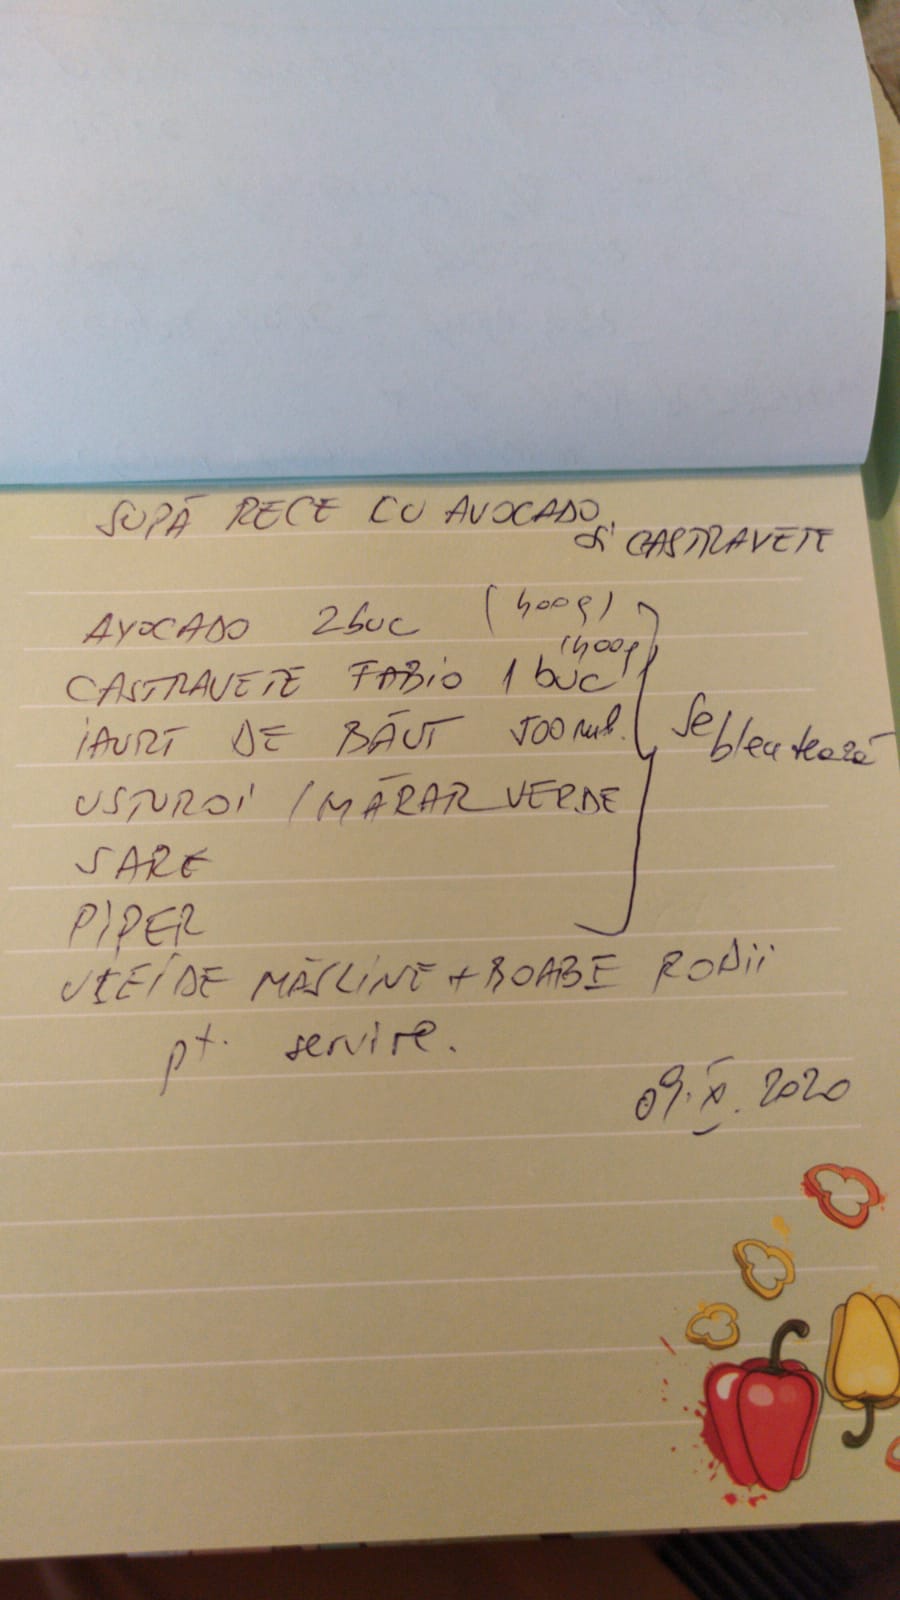 SUPĂ RECE CU AVOCADO
și CASTRAVETE
AVOCADO 2buc (400g)
CASTRAVETE FABIO 1 buc (400g)
IAURT DE BĂUT 500 ml.
USTUROI / MĂRAR VERDE
SARE
PIPER
Se blentează
ULEI DE MĂSLINE + BOABE RODII
pt. servire.
09.X.2020